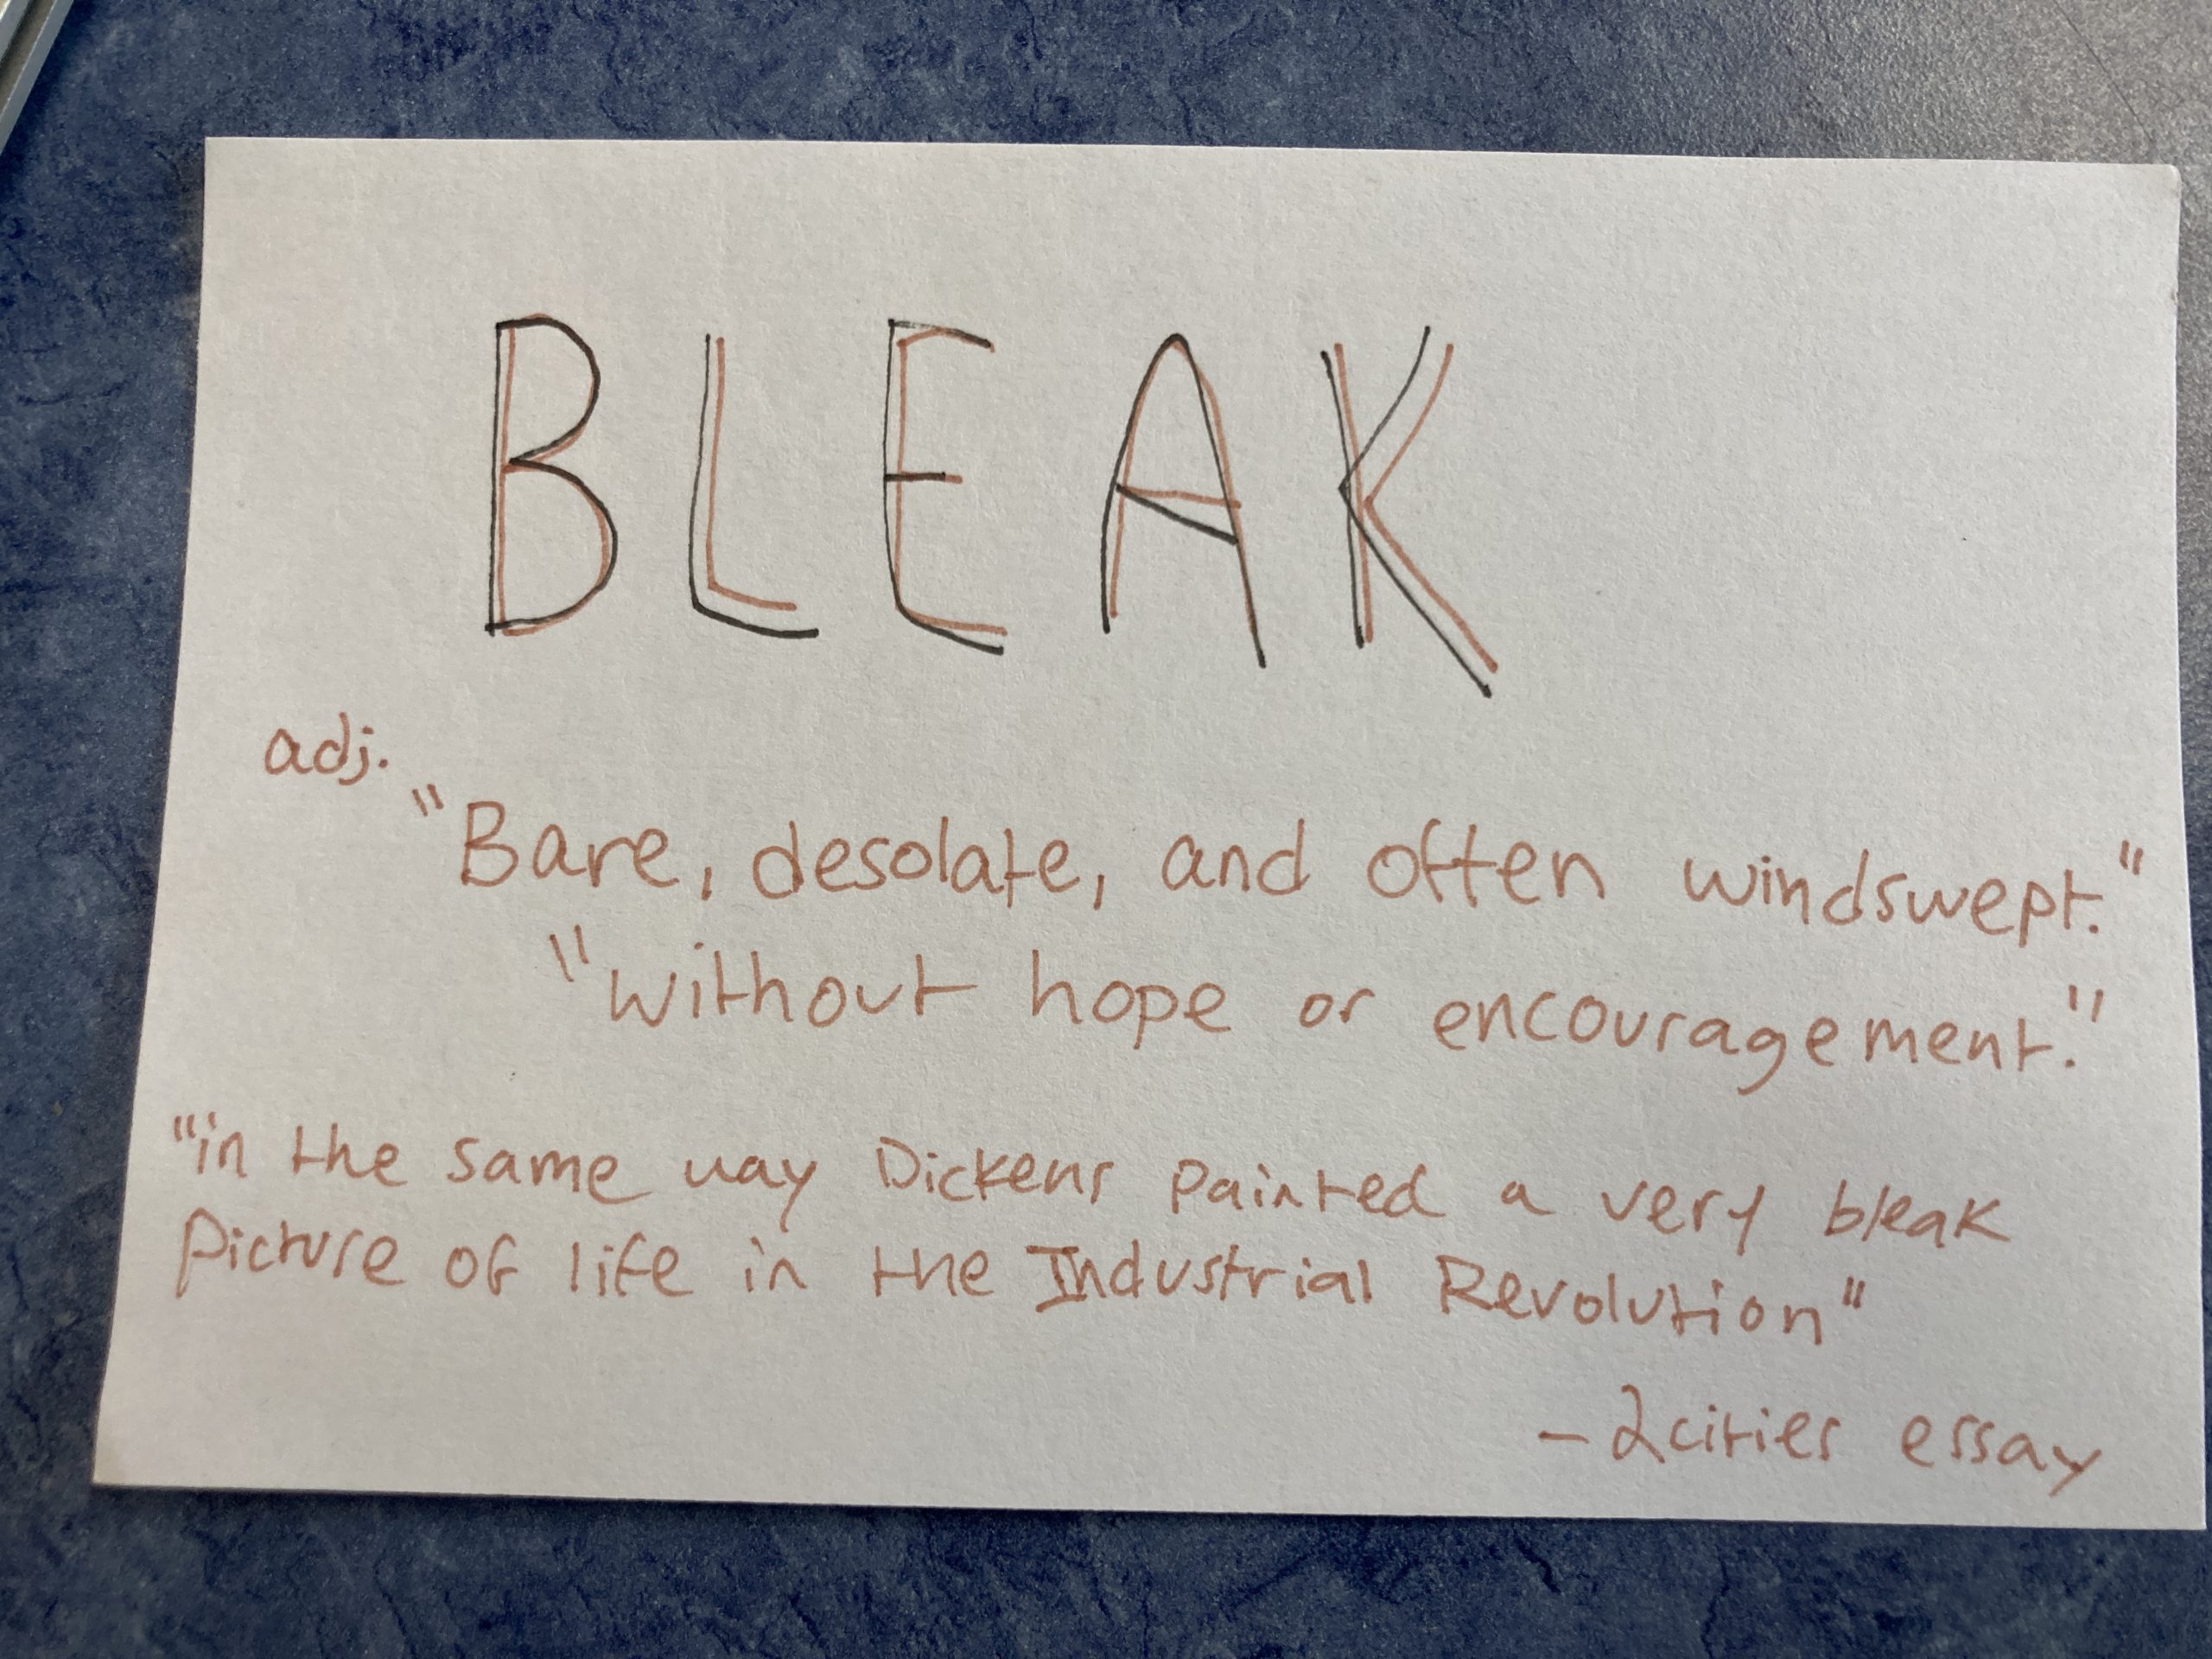 BLEAK
adj.
"Bare, desolate, and often windswept."
"without hope or encouragement."
"in the same way Dickens painted a very bleak
picture of life in the Industrial Revolution"
- 2cities essay